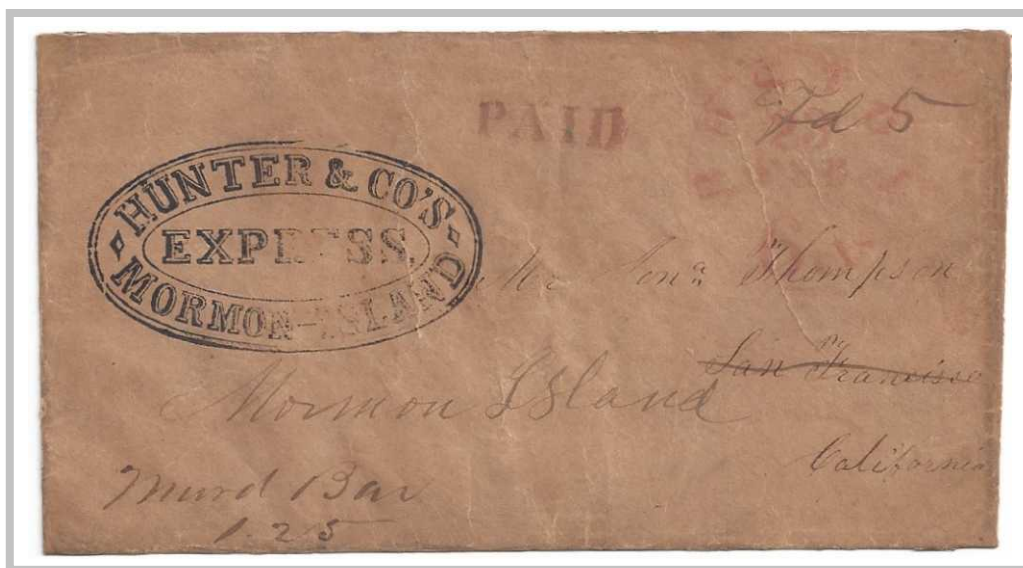 PAID
Fd 5
HUNTER & CO'S
EXPRESS.
MORMON-ISLAND
Mr Jonª Thompson
San Francisco
Mormon Island
California
Murd Bar
1.25